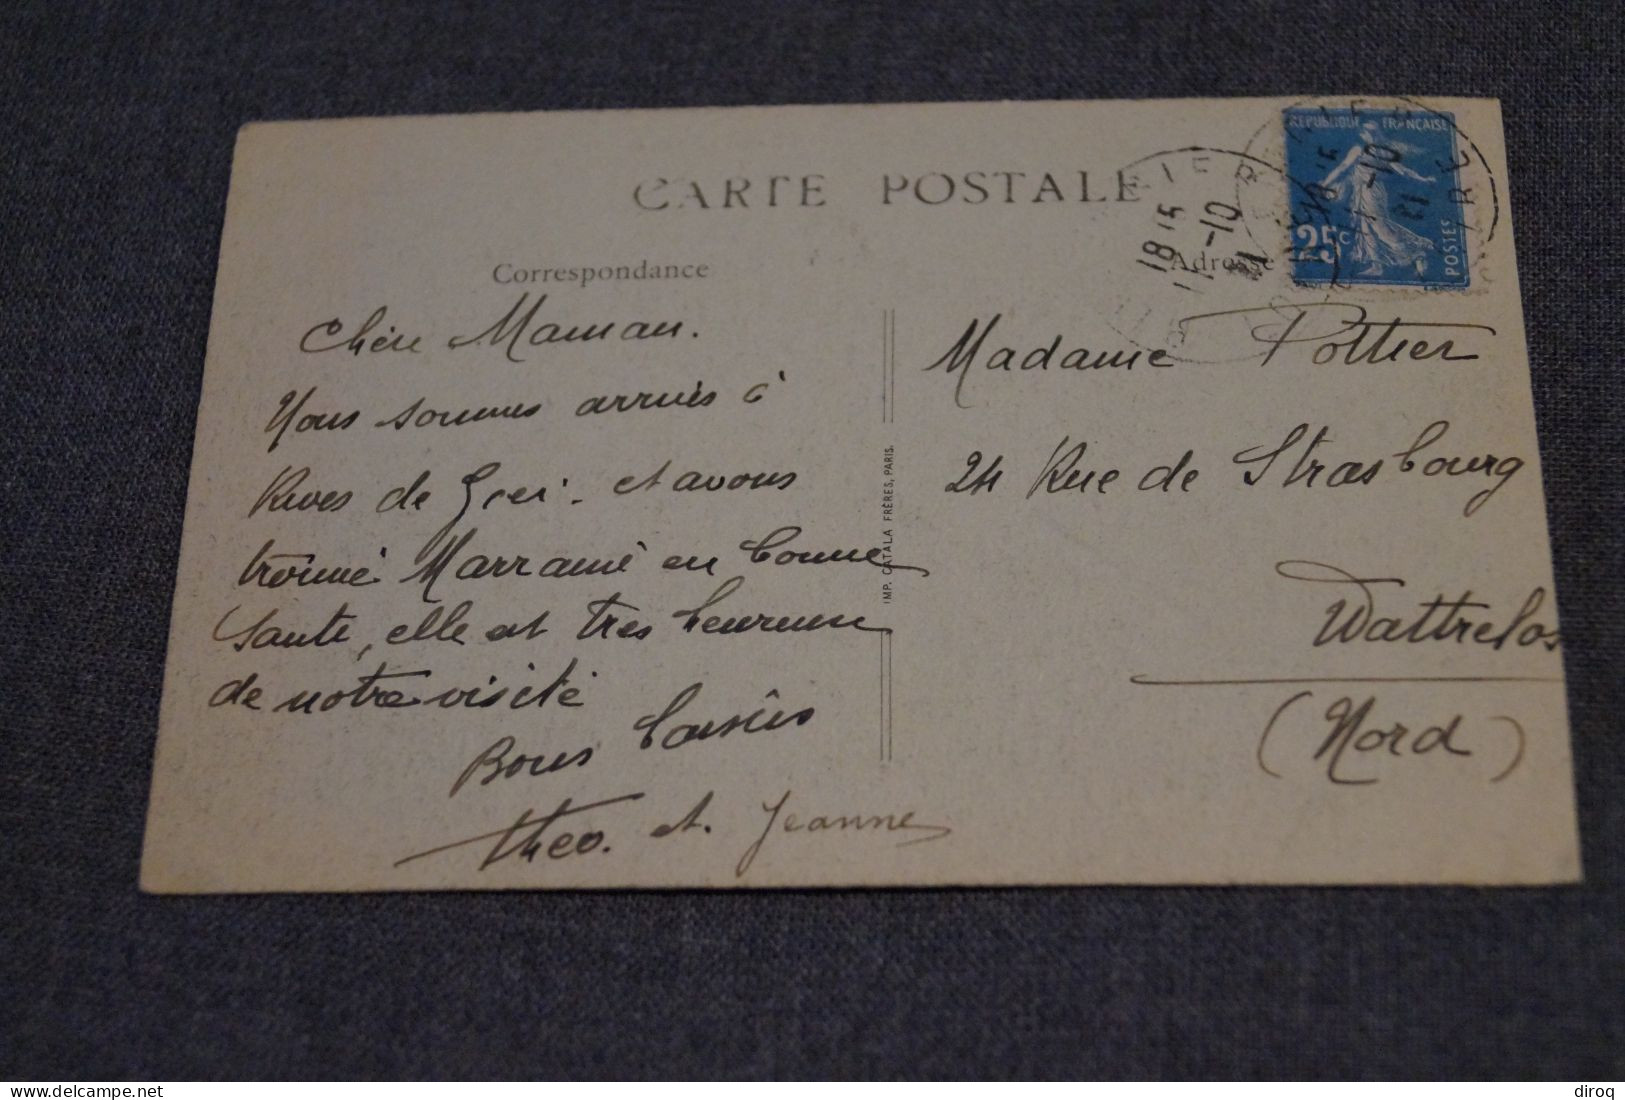 CARTE POSTALE
Correspondance
Adresse
REPUBLIQUE FRANÇAISE
25c
POSTES
18 15
1-10
21
Chère Maman.
Nous sommes arrivés à
Rives de et avons
trouvé en bonne
Santé, elle est très heureuse
de notre visite
Bons baisers
Theo. et. Jeanne
IMP. CATALA FRÈRES, PARIS.
Madame Pottier
24 Rue de Strasbourg
Wattrelos
(Nord)
diroq